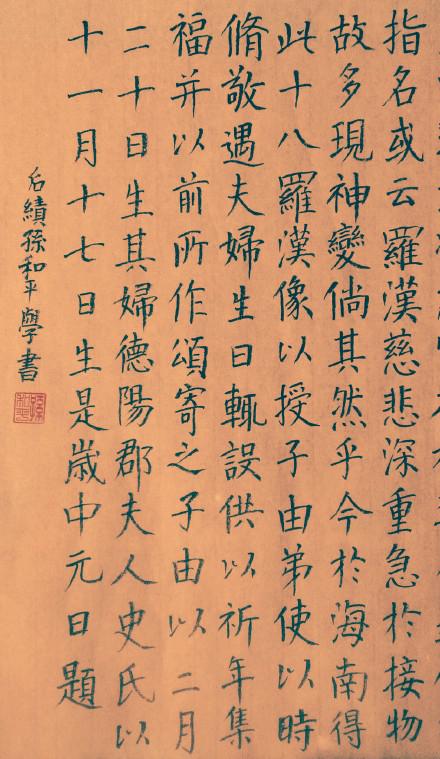 指名或云羅漢慈悲深重急於接物
故多現神變倘其然乎今於海南得
此十八羅漢像以授子由弟使以時
脩敬遇夫婦生日輒設供以祈年集
福并以前所作頌寄之子由以二月
二十日生其婦德陽郡夫人史氏以
十一月十七日生是歲中元日題
后績孫和平學書